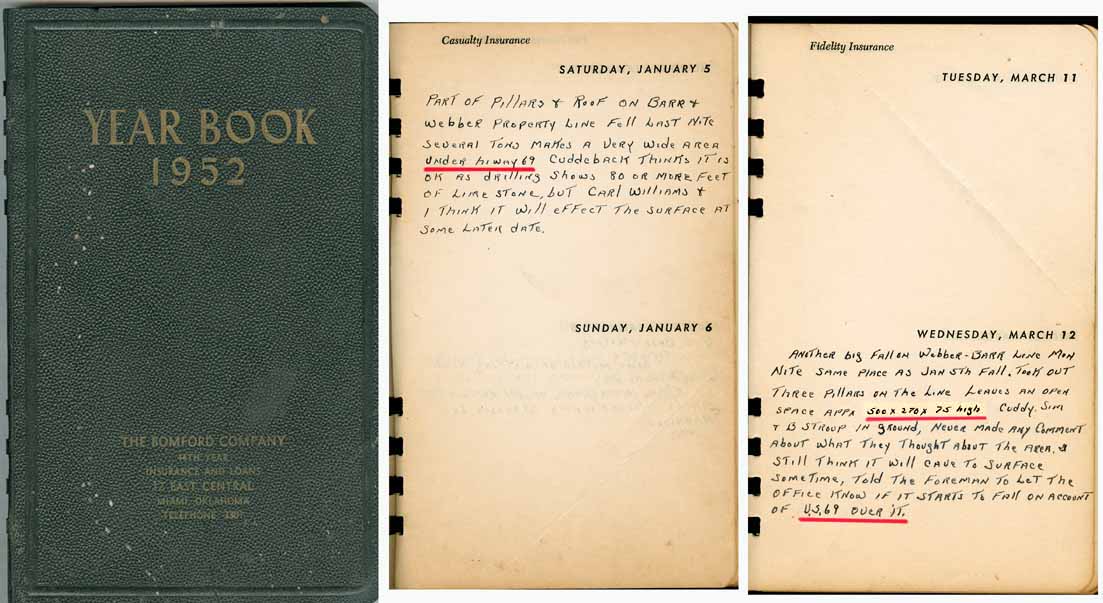 YEAR BOOK
1952
THE BOMFORD COMPANY
44TH YEAR
INSURANCE AND LOANS
12 EAST CENTRAL
MIAMI, OKLAHOMA
TELEPHONE 330
Casualty Insurance
SATURDAY, JANUARY 5
PART OF PILLARS & ROOF ON BARR &
WEBBER PROPERTY LINE FELL LAST NITE
SEVERAL TONS MAKES A VERY WIDE AREA
UNDER HIWAY 69 CUDDEBACK THINKS IT IS
OK AS DRILLING SHOWS 80 OR MORE FEET
OF LIME STONE, BUT CARL WILLIAMS &
I THINK IT WILL EFFECT THE SURFACE AT
SOME LATER DATE.
SUNDAY, JANUARY 6
Fidelity Insurance
TUESDAY, MARCH 11
WEDNESDAY, MARCH 12
ANOTHER BIG FALL ON WEBBER-BARR LINE MON
NITE SAME PLACE AS JAN 5TH FALL. TOOK OUT
THREE PILLARS ON THE LINE LEAVES AN OPEN
SPACE APPX 500 X 270 X 75 high CUDDY. SIM
& B STROUP IN GROUND, NEVER MADE ANY COMMENT
ABOUT WHAT THEY THOUGHT ABOUT THE AREA. I
STILL THINK IT WILL CAVE TO SURFACE
SOMETIME, TOLD THE FOREMAN TO LET THE
OFFICE KNOW IF IT STARTS TO FALL ON ACCOUNT
OF U.S. 69 OVER IT.